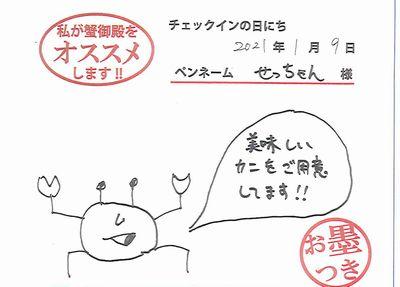 私が蟹御殿を
オススメ
します!!
チェックインの日にち
2021年1月9日
ペンネーム せっちゃん 様
美味しい
カニをご用意
してます!!
お墨
つき